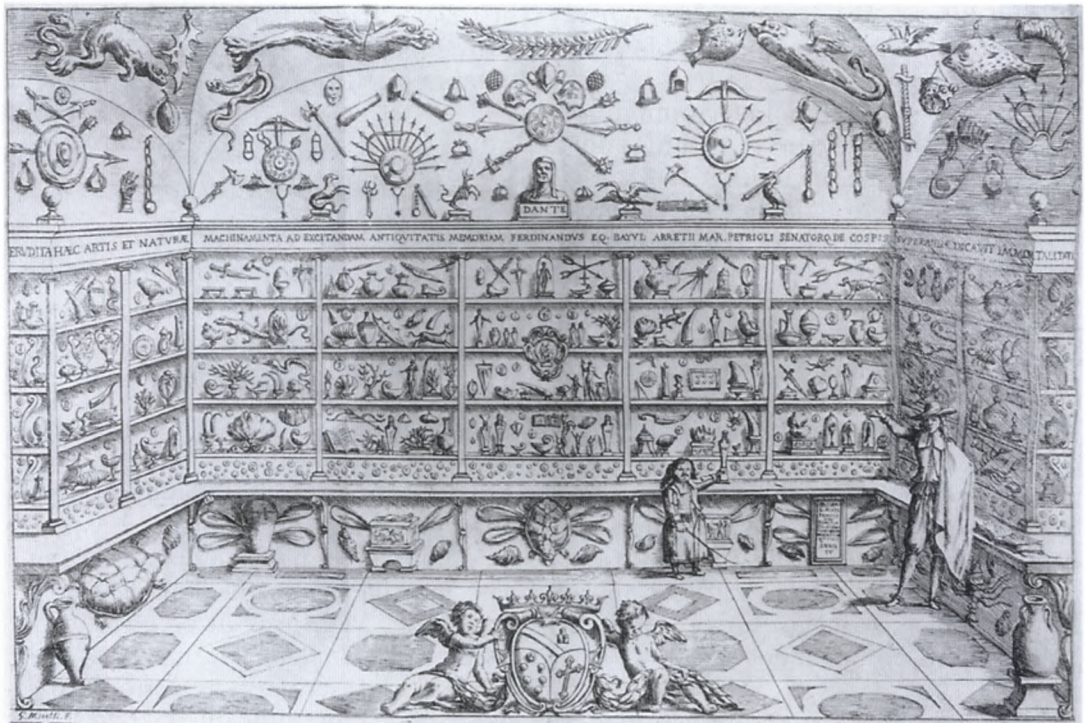 DANTE
ERVDITA HÆC ARTIS ET NATVRÆ
MACHINAMENTA AD EXCITANDAM ANTIQVITATIS MEMORIAM FERDINANDVS EQ. BAYVL ARRETII MAR. PETRIOLI SENATORQ. DE COSPI
DICAVIT
G. Mitelli F.